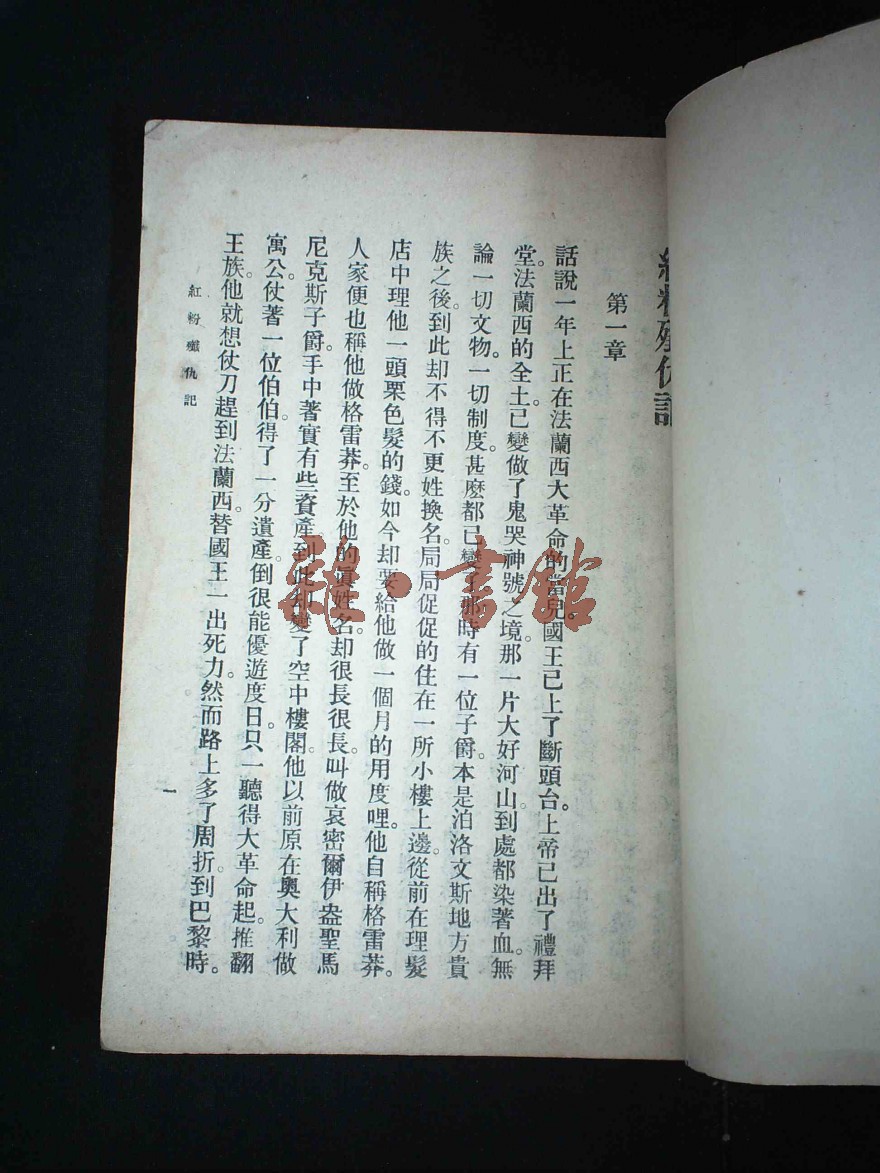 紅粉殲仇記
第一章
話說一年上正在法蘭西大革命的當兒。國王已上了斷頭台。上帝已出了禮拜
堂。法蘭西的全土已變做了鬼哭神號之境。那一片大好河山。到處都染著血。無
論一切文物。一切制度。甚麽都已變了。那時有一位子爵。本是泊洛文斯地方貴
族之後。到此却不得不更姓換名。局局促促的住在一所小樓上邊。從前在理髮
店中理他一頭栗色髮的錢。如今却要給他做一個月的用度哩。他自稱格雷莽。
人家便也稱他做格雷莽。至於他的眞姓名。却很長很長。叫做哀密爾伊盎聖馬
尼克斯子爵。手中著實有些資產。到此却變了空中樓閣。他以前原在奧大利做
寓公。仗著一位伯伯。得了一分遺產。倒很能優遊度日。只一聽得大革命起。推翻
王族。他就想仗刀趕到法蘭西。替國王一出死力。然而路上多了周折。到巴黎時。
紅粉殲仇記
一
雜·書館